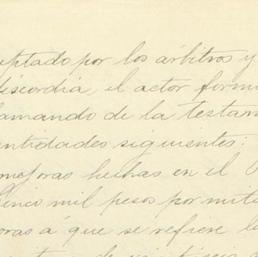 eptado por los árbitros y
discordia, el actor formu
lamando de la testam
antidades siguientes:
mejoras hechas en el
cinco mil pesos por mita
oras á que se refiere la